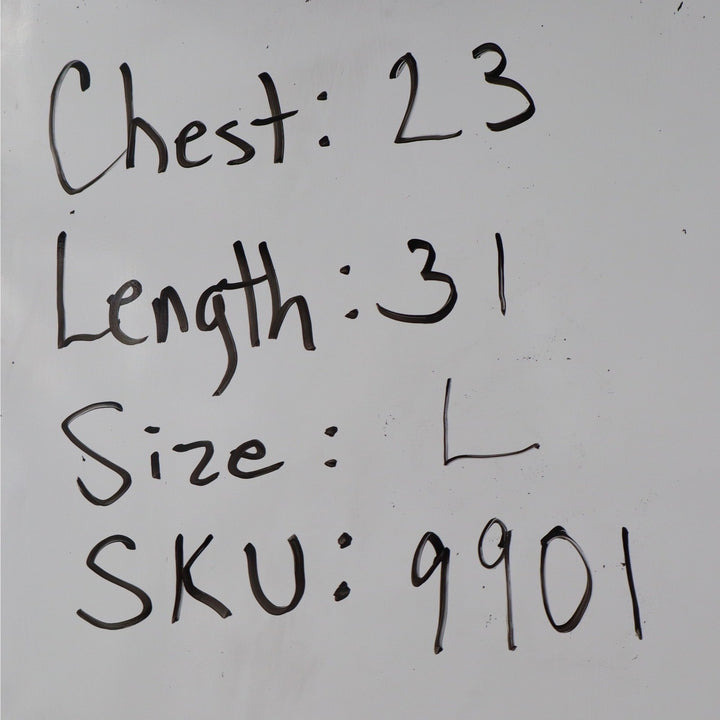 Chest: 23
Length: 31
Size: L
SKU: 9901